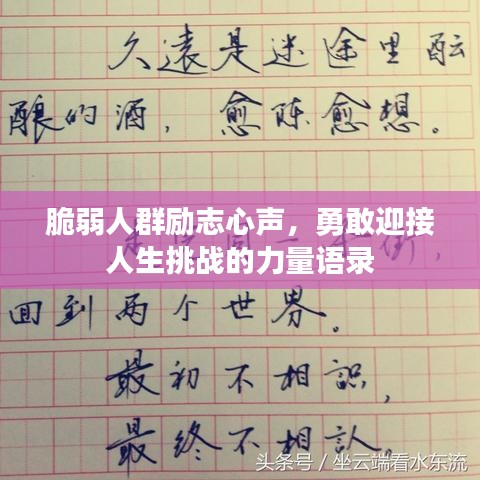 久遠是迷途里酝
酿的酒，愈陈愈想。
脆弱人群励志心声，勇敢迎接
人生挑战的力量语录
回到两个世界。
最初不相識，
最终不相认。
头条号／坐云端看水东流